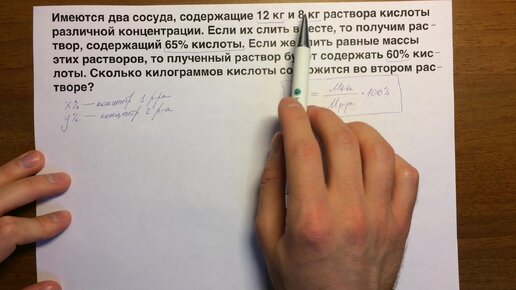 Имеются два сосуда, содержащие 12 кг и 8 кг раствора кислоты
различной концентрации. Если их слить вместе, то получим рас-
твор, содержащий 65% кислоты. Если же слить равные массы
этих растворов, то плученный раствор будет содержать 60% кис-
лоты. Сколько килограммов кислоты содержится во втором рас-
творе?
x% — концентр 1 р-ра
y% — концентр 2 р-а
= · 100%